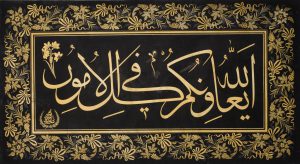 الله يعاونكم في كل الامور